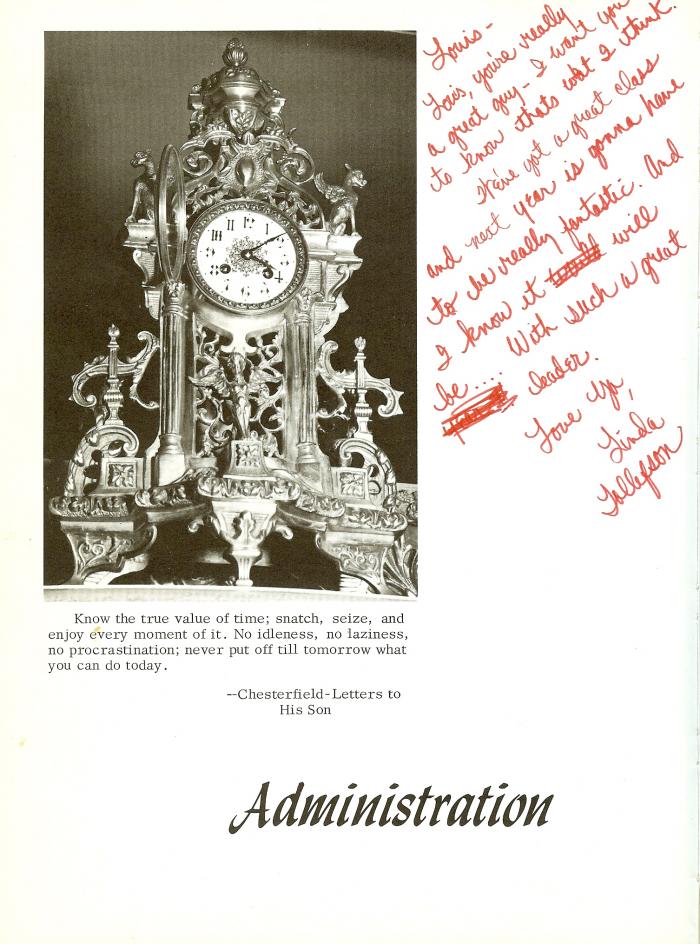 Louis-
Lois, you're really
a great guy- I want you
to know thats what I think.
We've got a great class
and next year is gonna have
to be really fantastic. And
I know it will
be.... With such a great
leader.
Love Ya,
Linda
Tollefson
Know the true value of time; snatch, seize, and
enjoy every moment of it. No idleness, no laziness,
no procrastination; never put off till tomorrow what
you can do today.
--Chesterfield-Letters to
His Son
Administration